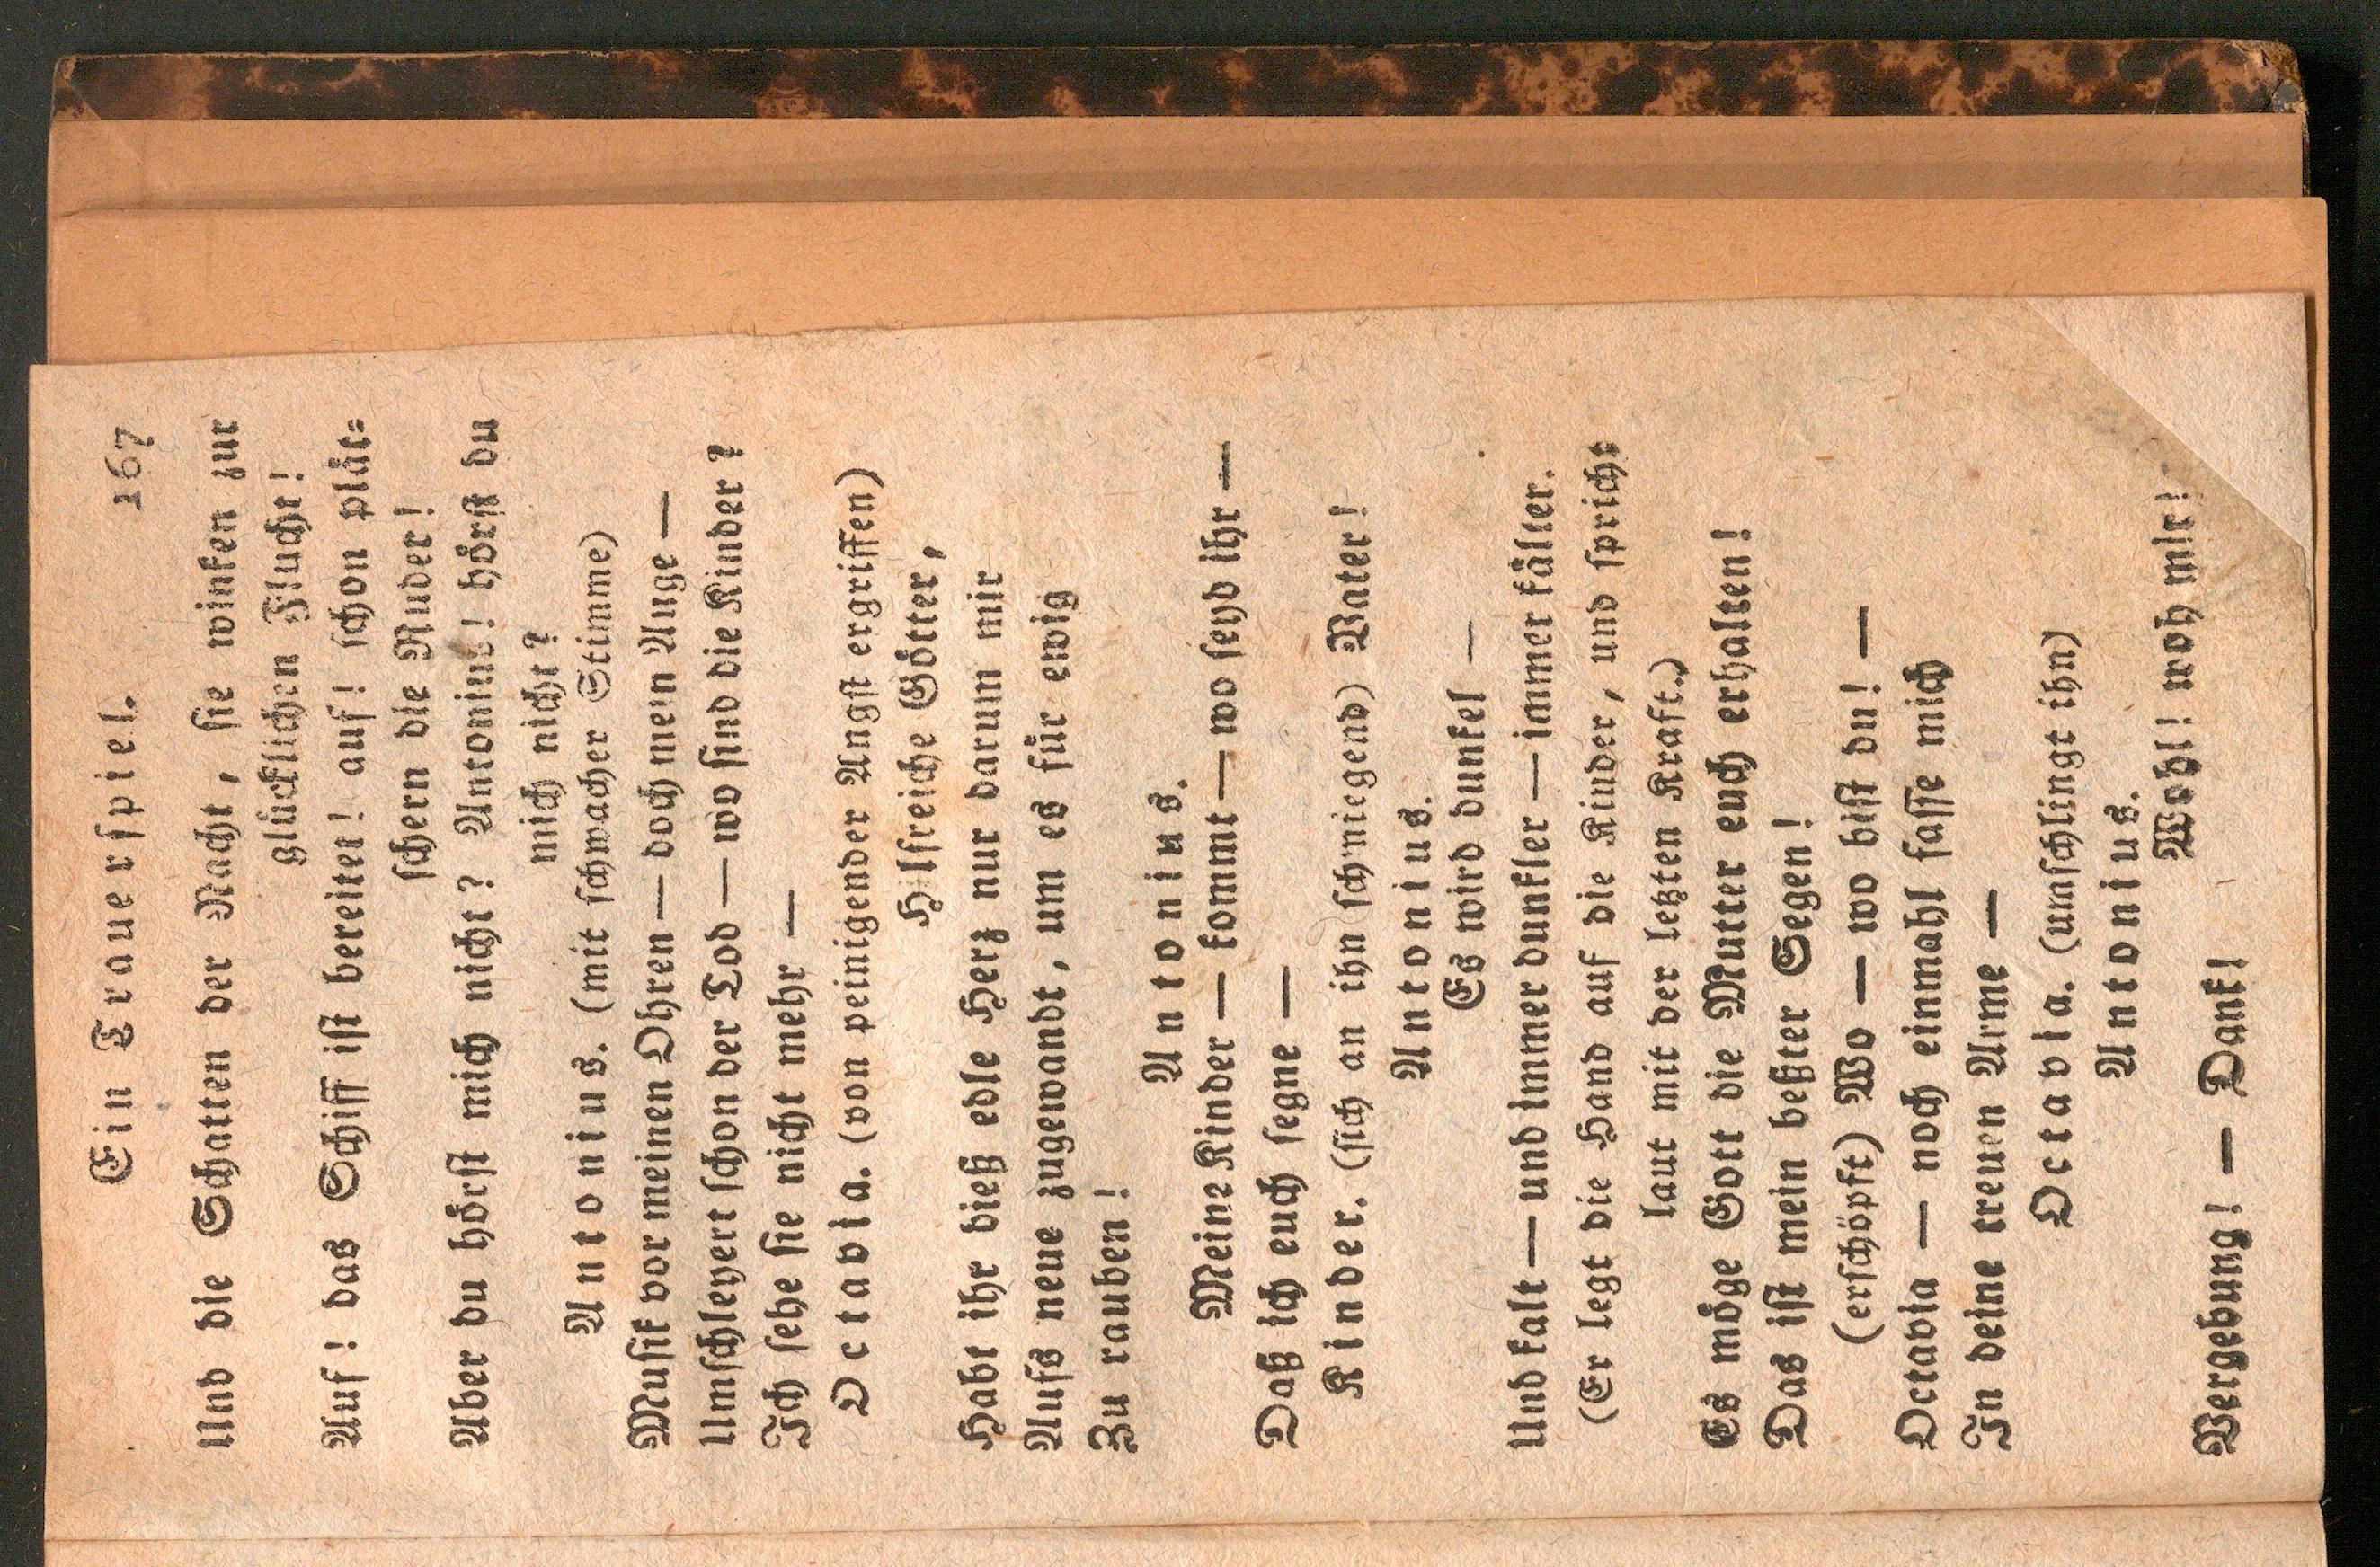 Ein Trauerspiel. 167
Und die Schatten der Nacht, sie winken zur
glücklichen Flucht!
Auf! das Schiff ist bereitet! auf! schon plät=
schern die Ruder!
Aber du hörst mich nicht? Antonius! hörst du
mich nicht?
Antonius. (mit schwacher Stimme)
Musik vor meinen Ohren — doch mein Auge —
Umschleyert schon der Tod — wo sind die Kinder?
Ich sehe sie nicht mehr —
Octavia. (von peinigender Angst ergriffen)
Hilfreiche Götter,
Habt ihr dieß edle Herz nur darum mir
Aufs neue zugewandt, um es für ewig
Zu rauben!
Antonius.
Meine Kinder — kommt — wo seyd ihr —
Daß ich euch segne —
Kinder. (sich an ihn schmiegend) Vater!
Antonius.
Es wird dunkel —
Und kalt — und immer dunkler — immer kälter.
(Er legt die Hand auf die Kinder, und spricht
laut mit der letzten Kraft.)
Es möge Gott die Mutter euch erhalten!
Das ist mein beßter Segen!
(erschöpft) Wo — wo bist du! —
Octavia — noch einmahl fasse mich
In deine treuen Arme —
Octavia. (umschlingt ihn)
Antonius.
Wohl! woh mir!
Vergebung! — Dank!